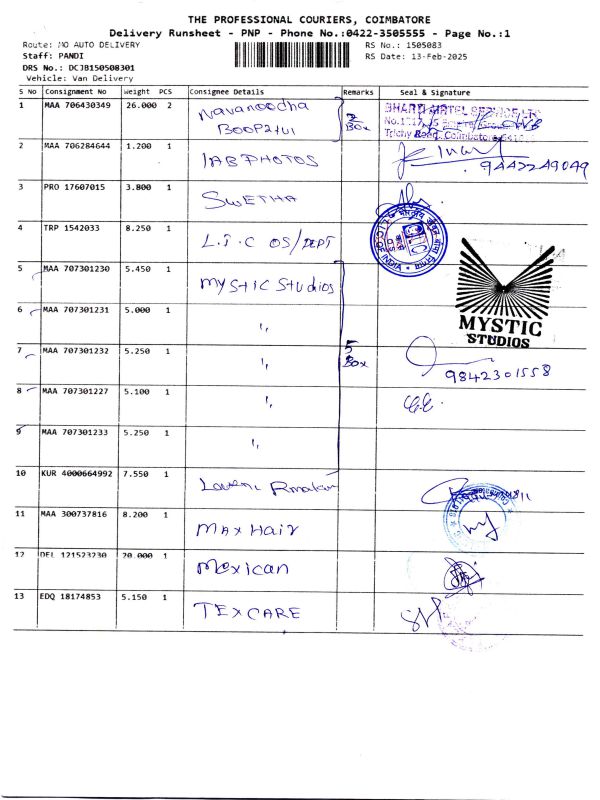 THE PROFESSIONAL COURIERS, COIMBATORE
Delivery Runsheet - PNP - Phone No.:0422-3505555 - Page No.:1
Route: MO AUTO DELIVERY RS No.: 1505083
Staff: PANDI RS Date: 13-Feb-2025
DRS No.: DCJB150508301
Vehicle: Van Delivery
S No Consignment No Weight PCS Consignee Details Remarks Seal & Signature
1 MAA 706430349 26.000 2 Navanoodha 2 Box BHARTI AIRTEL SERVICE LTD
2 MAA 706284644 1.200 1 IAB PHOTOS 9442249049
3 PRO 17607015 3.800 1 SWETHA
4 TRP 1542033 8.250 1 L.I.C OS/DEPT
5 MAA 707301230 5.450 1 MYSTIC Studios MYSTIC STUDIOS
6 MAA 707301231 5.000 1 ,,
7 MAA 707301232 5.250 1 ,, 5 Box 9842301558
8 MAA 707301227 5.100 1 ,,
9 MAA 707301233 5.250 1 ,,
10 KUR 4000664992 7.550 1
11 MAA 300737816 8.200 1 MAX Hair
12 DEL 121523230 20.000 1 Mexican
13 EDQ 18174853 5.150 1 TEXCARE